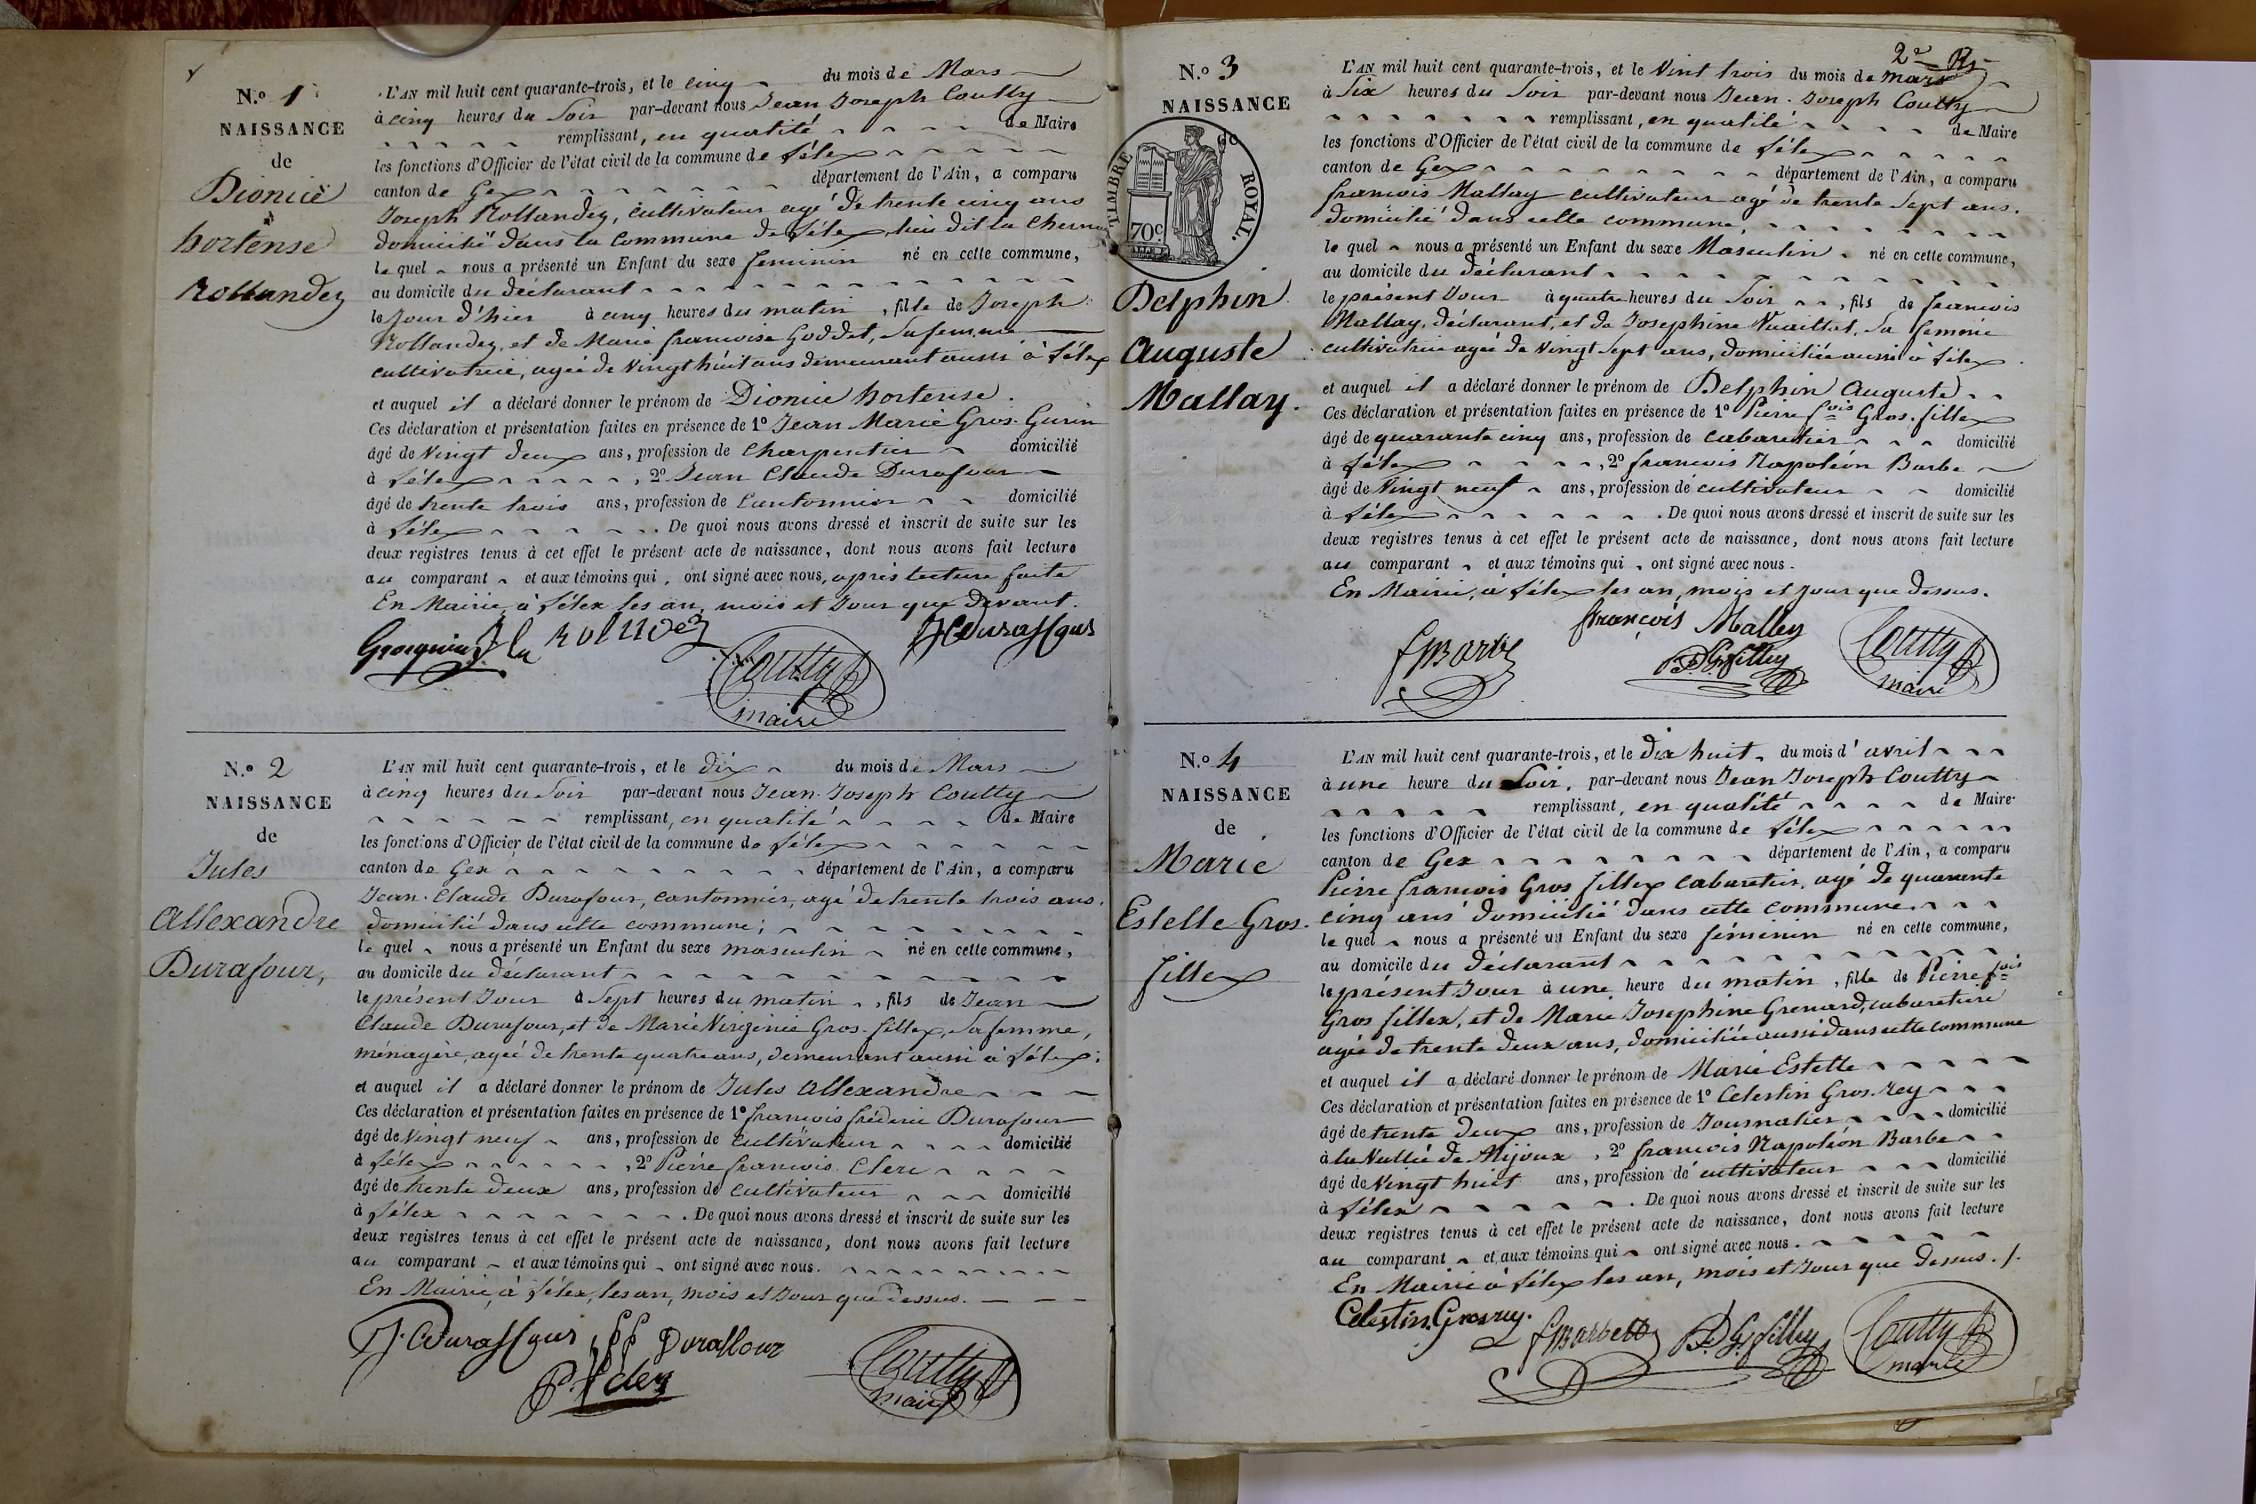 N.o 1
NAISSANCE
de
Dionice
hortense
Rollandez
L'AN mil huit cent quarante-trois, et le cinq du mois de Mars
à cinq heures du Soir par-devant nous Jean Joseph Coutty
remplissant, en qualité de Maire
les fonctions d'Officier de l'état civil de la commune de Lélex
canton de Gex département de l'Ain, a comparu
Joseph Rollandez, cultivateur agé de trente cinq ans
domicilié dans la commune de Lélex, lieu dit la
le quel nous a présenté un Enfant du sexe feminin né en cette commune,
au domicile du déclarant
le Jour d'hier à cinq heures du matin, fille de Joseph
Rollandez, et de Marie francoise Goddet, Sa femme
cultivatrice, agée de Vingt huit ans demeurant aussi à Lélex
et auquel il a déclaré donner le prénom de Dionice hortense.
Ces déclaration et présentation faites en présence de 1o Jean Marie Gros-Gurin
âgé de Vingt deux ans, profession de Charpentier domicilié
à Lélex, 2o Jean Claude Durafour
âgé de trente trois ans, profession de Cantonnier domicilié
à Lélex. De quoi nous avons dressé et inscrit de suite sur les
deux registres tenus à cet effet le présent acte de naissance, dont nous avons fait lecture
au comparant et aux témoins qui ont signé avec nous, après lecture faite
En Mairie, à Lélex les an, mois et Jour que devant.
Coutty
maire
N.o 2
NAISSANCE
de
Jules
Allexandre
Durafour,
L'AN mil huit cent quarante-trois, et le dix du mois de Mars
à cinq heures du Soir par-devant nous Jean Joseph Coutty
remplissant, en qualité de Maire
les fonctions d'Officier de l'état civil de la commune de Lélex
canton de Gex département de l'Ain, a comparu
Jean Claude Durafour, cantonnier, agé de trente trois ans.
domicilié dans cette commune;
le quel nous a présenté un Enfant du sexe masculin né en cette commune,
au domicile du déclarant
le présent Jour à Sept heures du matin, fils de Jean
Claude Durafour, et de Marie Virginie Gros-fillex, Sa femme,
ménagère, agée de trente quatre ans, demeurant aussi à Lélex;
et auquel il a déclaré donner le prénom de Jules Allexandre
Ces déclaration et présentation faites en présence de 1o francois fréderic Durafour
âgé de Vingt neuf ans, profession de cultivateur domicilié
à Lélex, 2o Pierre francois Clerc
âgé de trente deux ans, profession de cultivateur domicilié
à Lélex. De quoi nous avons dressé et inscrit de suite sur les
deux registres tenus à cet effet le présent acte de naissance, dont nous avons fait lecture
au comparant et aux témoins qui ont signé avec nous.
En Mairie, à Lélex, les an, mois et Jour que dessus.
Coutty
maire
2e
N.o 3
NAISSANCE
de
TIMBRE ROYAL.
70c
Delphin
Auguste
Mallay.
L'AN mil huit cent quarante-trois, et le Vint trois du mois de mars
à Six heures du Soir par-devant nous Jean Joseph Coutty
remplissant, en qualité de Maire
les fonctions d'Officier de l'état civil de la commune de Lélex
canton de Gex département de l'Ain, a comparu
francois Mallay cultivateur agé de trente Sept ans.
domicilié dans cette commune,
le quel nous a présenté un Enfant du sexe Masculin né en cette commune,
au domicile du déclarant
le présent Jour à quatre heures du Soir, fils de francois
Mallay, déclarant, et de Josephine Vuaillat, Sa femme
cultivatrice agée de Vingt Sept ans, domiciliée aussi à Lélex
et auquel il a déclaré donner le prénom de Delphin Auguste
Ces déclaration et présentation faites en présence de 1o Pierre fois Gros-fillex
âgé de quarante cinq ans, profession de cabaretier domicilié
à Lélex, 2o francois Napoléon Barbe
âgé de Vingt neuf ans, profession de cultivateur domicilié
à Lélex. De quoi nous avons dressé et inscrit de suite sur les
deux registres tenus à cet effet le présent acte de naissance, dont nous avons fait lecture
au comparant et aux témoins qui ont signé avec nous.
En Mairie, à Lélex les an, mois et jour que dessus.
françois Malley
Coutty
maire
N.o 4
NAISSANCE
de
Marie
Estelle Gros
fillex
L'AN mil huit cent quarante-trois, et le dix huit du mois d'avril
à une heure du Soir, par-devant nous Jean Joseph Coutty
remplissant, en qualité de Maire
les fonctions d'Officier de l'état civil de la commune de Lélex
canton de Gex département de l'Ain, a comparu
Pierre francois Gros fillex cabaretier, agé de quarante
cinq ans domicilié dans cette commune.
le quel nous a présenté un Enfant du sexe féminin né en cette commune,
au domicile du déclarant
le présent Jour à une heure du matin, fille de Pierre fois
Gros fillex, et de Marie Josephine Grenard, cabaretiere
agée de trente deux ans, domiciliée aussi dans cette commune
et auquel il a déclaré donner le prénom de Marie Estelle
Ces déclaration et présentation faites en présence de 1o Celestin Gros-rey
âgé de trente deux ans, profession de Journalier domicilié
à la Vallée de Mijoux, 2o francois Napoléon Barbe
âgé de Vingt huit ans, profession de cultivateur domicilié
à Lélex. De quoi nous avons dressé et inscrit de suite sur les
deux registres tenus à cet effet le présent acte de naissance, dont nous avons fait lecture
au comparant et aux témoins qui ont signé avec nous.
En Mairie à Lélex les an, mois et Jour que dessus.
Celestin Grosrey.
Coutty
maire